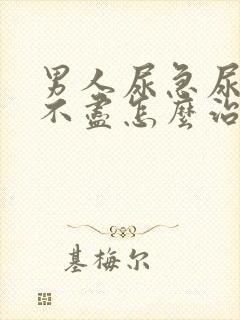 男人尿急尿
不盡怎麼治
基梅尔